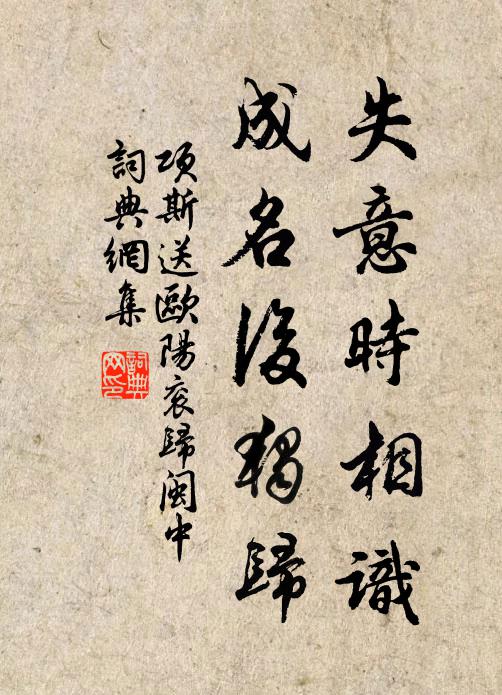 失意時相識
成名後獨歸
項斯送歐陽衮歸閩中
詞典網集
詞典網印